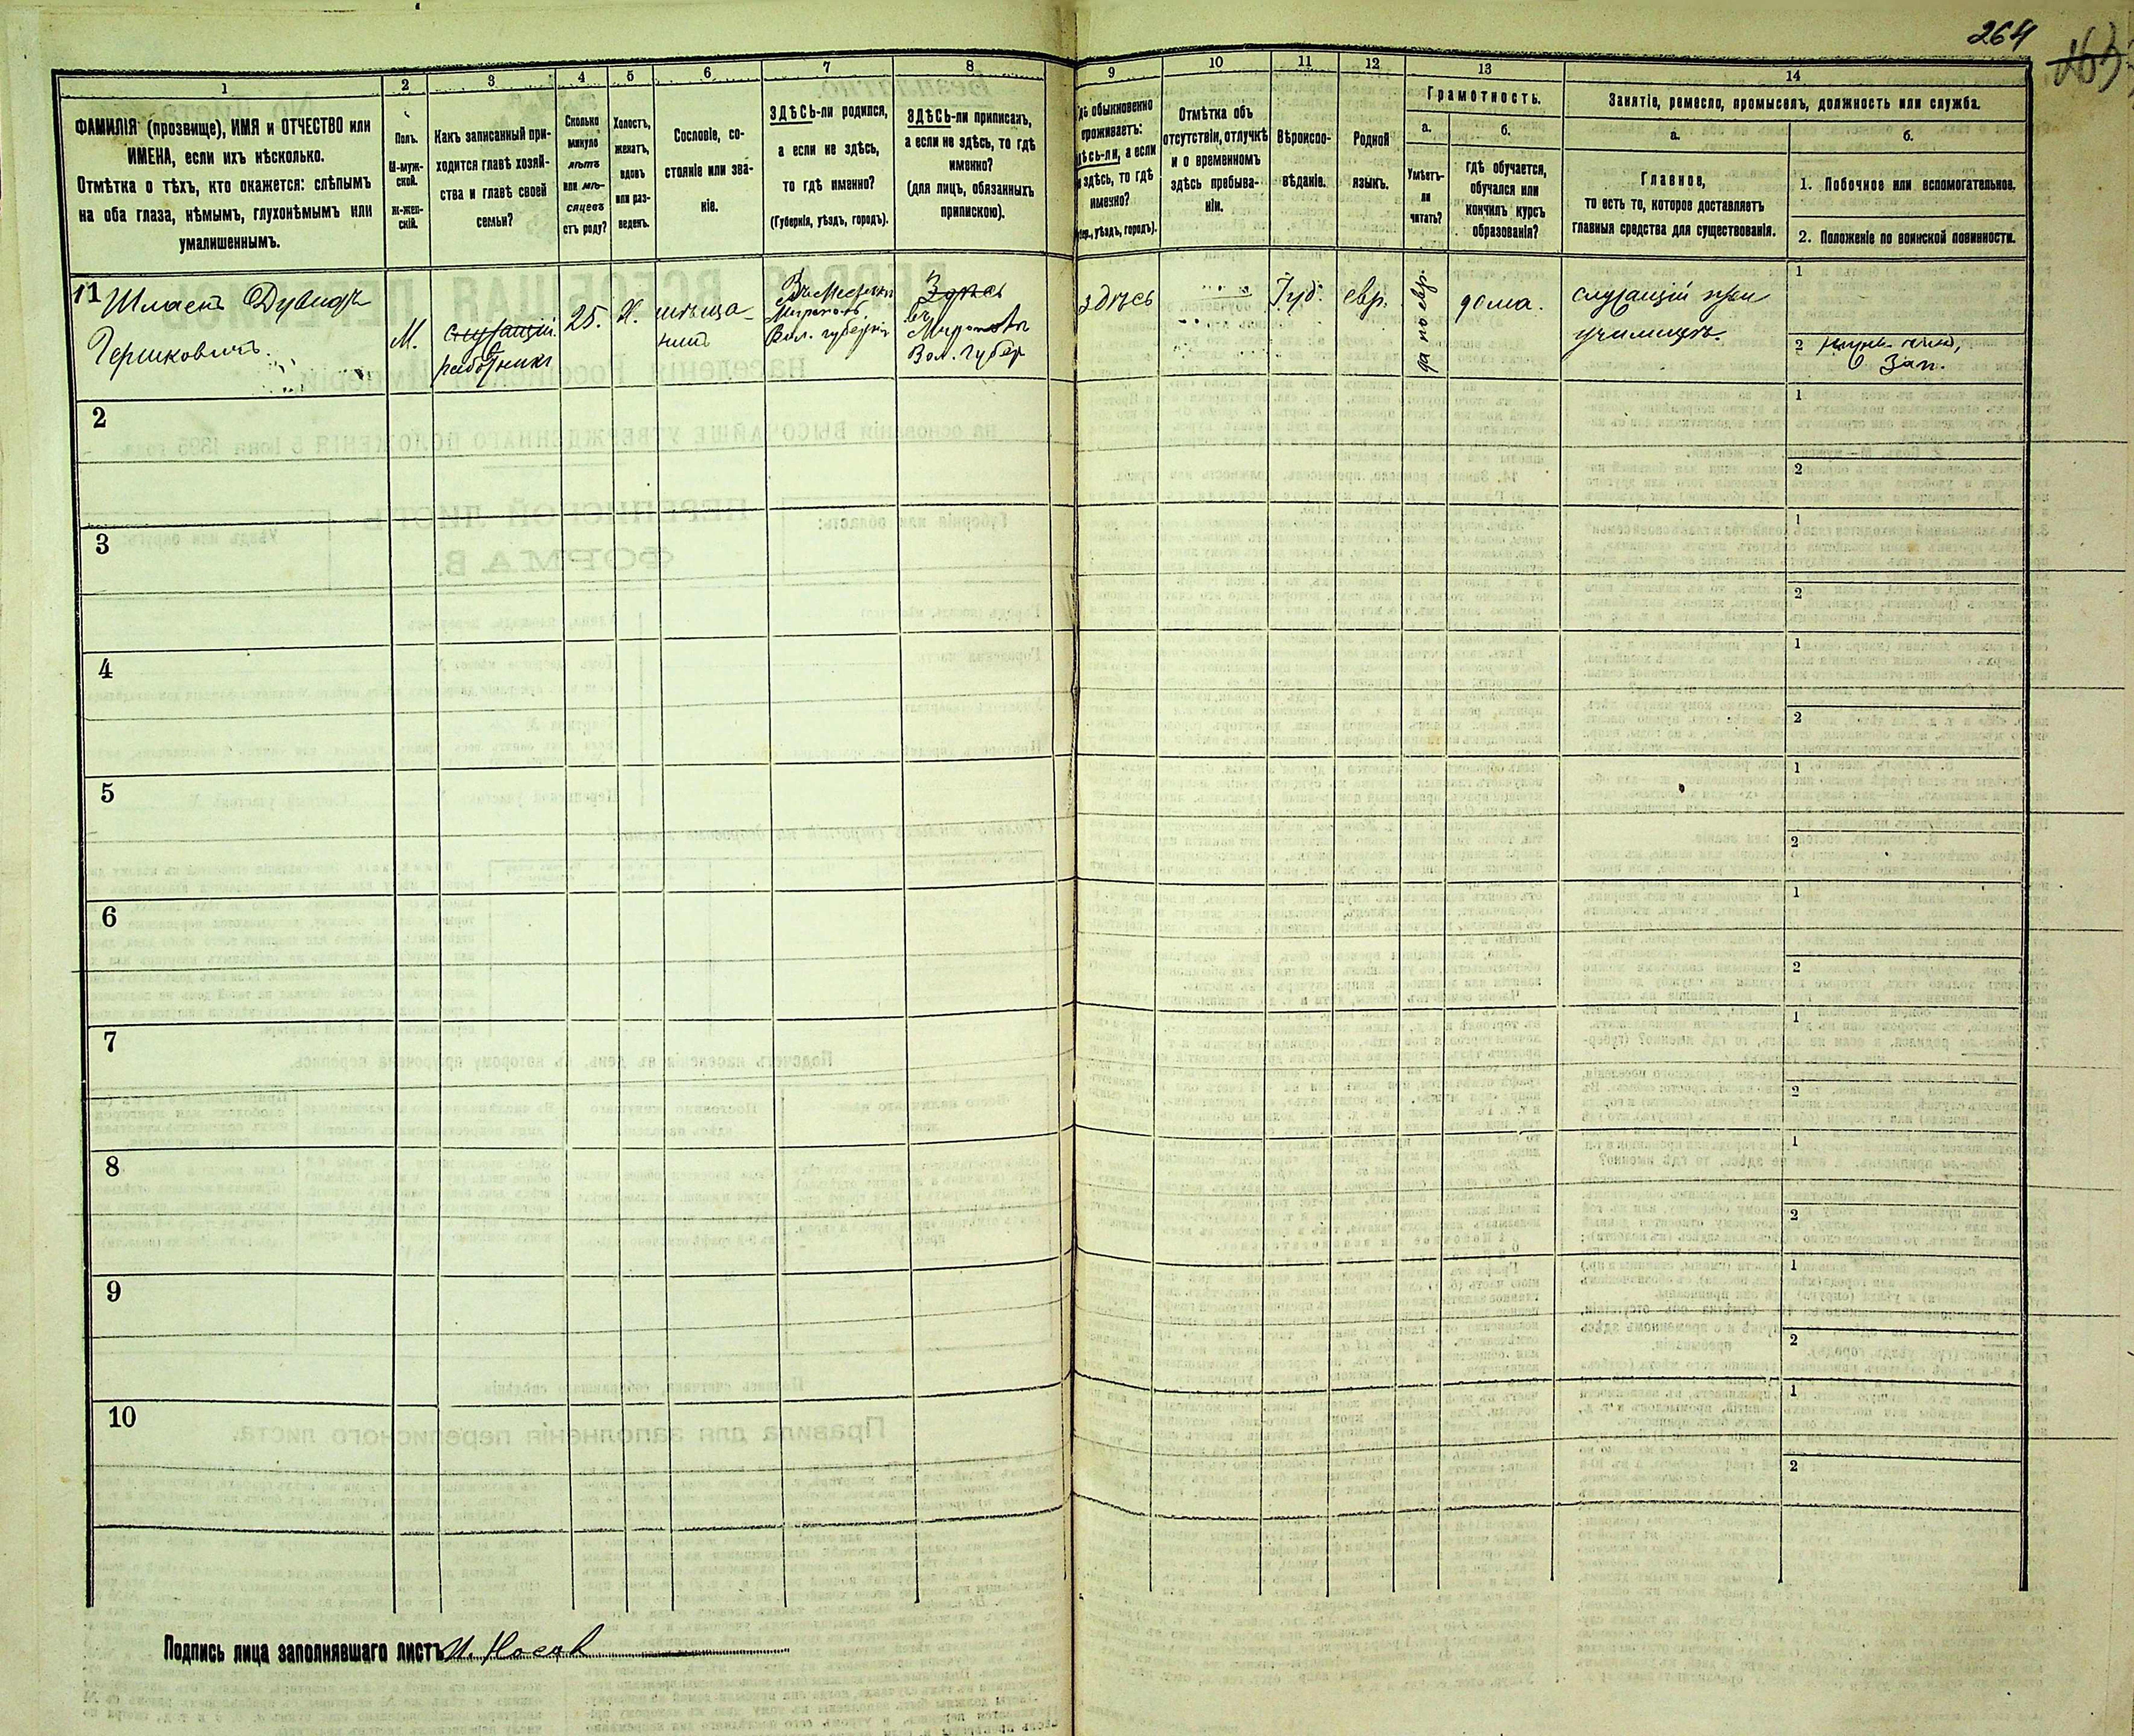 264
1
2
3
4
5
6
7
8
9
10
11
12
13
14
ФАМИЛІЯ (прозвище), ИМЯ и ОТЧЕСТВО или
ИМЕНА, если ихъ нѣсколько.
Отмѣтка о тѣхъ, кто окажется: слѣпымъ
на оба глаза, нѣмымъ, глухонѣмымъ или
умалишеннымъ.
Полъ.
М-муж-
ской.
Ж-жен-
скій.
Какъ записанный при-
ходится главѣ хозяй-
ства и главѣ своей
семьи?
Сколько
минуло
лѣтъ
или мѣ-
сяцевъ
отъ роду?
Холостъ,
женатъ,
вдовъ
или раз-
веденъ.
Сословіе, со-
стояніе или зва-
ніе.
ЗДѢСЬ-ли родился,
а если не здѣсь,
то гдѣ именно?
(Губернія, уѣздъ, городъ).
ЗДѢСЬ-ли приписанъ,
а если не здѣсь, то гдѣ
именно?
(для лицъ, обязанныхъ
припискою).
обыкновенно
проживаетъ:
а если
здѣсь, то гдѣ
именно?
уѣздъ, городъ).
Отмѣтка объ
отсутствіи, отлучкѣ
и о временномъ
здѣсь пребыва-
ніи.
Вѣроиспо-
вѣданіе.
Родной
языкъ.
Грамотность.
а.
Умѣетъ-
ли
читать?
б.
гдѣ обучается,
обучался или
кончилъ курсъ
образованія?
Занятіе, ремесло, промыселъ, должность или служба.
а.
Главное,
то есть то, которое доставляетъ
главныя средства для существованія.
б.
1. Побочное или вспомогательное.
2. Положеніе по воинской повинности.
11
Дувидъ
Гершковичъ.
М.
служащій
работникъ
25.
Х.
мѣща-
нинъ
Вол. губерніи
Здѣсь
въ
Вол. губер
здѣсь
Іуд.
евр.
да по евр.
дома.
служащій при
училищѣ.
1
2
Зап.
2
1
2
3
1
2
4
1
2
5
1
2
6
1
2
7
1
2
8
1
2
9
1
2
10
1
2
Подпись лица заполнявшаго листъ И. Носов